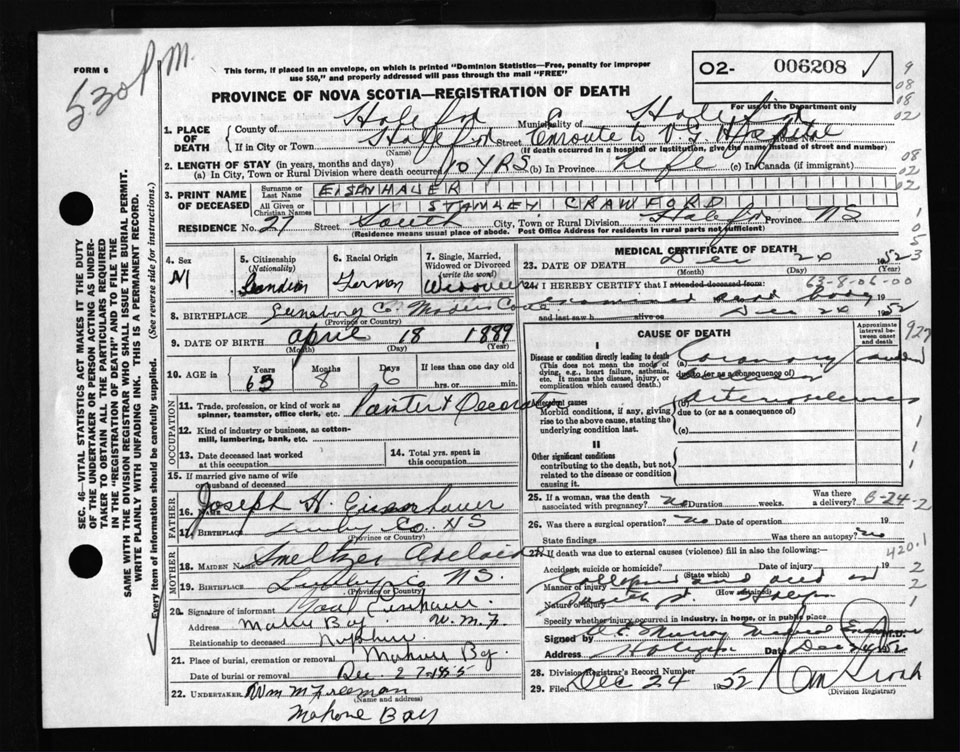 5.30 P.M.
FORM 6
This form, if placed in an envelope, on which is printed "Dominion Statistics—Free, penalty for improper
use $50," and properly addressed will pass through the mail "FREE"
02- 006208
For use of the Department only
PROVINCE OF NOVA SCOTIA—REGISTRATION OF DEATH
9
08
18
02
08
02
1
0
5
3
1. PLACE OF DEATH
County of Halifax Municipality of Halifax
If in City or Town Halifax Street Enroute to V. G. Hospital House No.
(Name) (If death occurred in a hospital or institution, give the name instead of street and number)
2. LENGTH OF STAY (in years, months and days)
(a) In City, Town or Rural Division where death occurred 10 YRS (b) In Province Life (c) In Canada (if immigrant)
3. PRINT NAME OF DECEASED
Surname or Last Name EISENHAUER
All Given or Christian Names STANLEY CRAWFORD
RESIDENCE No. 27 Street South City, Town or Rural Division Halifax Province NS
(Residence means usual place of abode. Post Office Address for residents in rural parts not sufficient)
SEC. 46—VITAL STATISTICS ACT MAKES IT THE DUTY
OF THE UNDERTAKER OR PERSON ACTING AS UNDER-
TAKER TO OBTAIN ALL THE PARTICULARS REQUIRED
IN THE "REGISTRATION OF DEATH" AND TO FILE THE
SAME WITH THE DIVISION REGISTRAR WHO SHALL ISSUE THE BURIAL PERMIT.
WRITE PLAINLY WITH UNFADING INK. THIS IS A PERMANENT RECORD.
Every item of information should be carefully supplied. (See reverse side for instructions.)
4. Sex M
5. Citizenship (Nationality) Canadian
6. Racial Origin German
7. Single, Married, Widowed or Divorced (write the word) Widower
8. BIRTHPLACE Lunenburg Co.
(Province or Country)
9. DATE OF BIRTH April 18 1889
(Month) (Day) (Year)
10. AGE in Years 63 Months 8 Days 6 If less than one day old hrs. or min.
OCCUPATION
11. Trade, profession, or kind of work as spinner, teamster, office clerk, etc. Painter & Decorator
12. Kind of industry or business, as cotton-mill, lumbering, bank, etc.
13. Date deceased last worked at this occupation
14. Total yrs. spent in this occupation
15. If married give name of wife or husband of deceased
FATHER
16. Name Joseph H. Eisenhauer
17. Birthplace Co. NS
(Province or Country)
MOTHER
18. MAIDEN NAME Smeltzer
19. BIRTHPLACE NS.
(Province or Country)
20. Signature of informant Eisenhauer
Address
Relationship to deceased
21. Place of burial, cremation or removal Mahone Bay
Date of burial or removal Dec. 27
22. UNDERTAKER Wm M Freeman
(Name and address)
Mahone Bay
MEDICAL CERTIFICATE OF DEATH
23. DATE OF DEATH Dec 24 1952
(Month) (Day) (Year)
24. I HEREBY CERTIFY that I attended deceased from: 63-8-06-00
examined dead body 19
and last saw h alive on Dec 24 1952
CAUSE OF DEATH
Approximate interval between onset and death
I
Disease or condition directly leading to death
(This does not mean the mode of dying, e.g., heart failure, asthenia, etc. It means the disease, injury, or complication which caused death.)
(a) Coronary
due to (or as a consequence of)
Antecedent causes
Morbid conditions, if any, giving rise to the above cause, stating the underlying condition last.
(b) Arteriosclerosis
due to (or as a consequence of)
(c)
II
Other significant conditions
contributing to the death, but not related to the disease or condition causing it.
25. If a woman, was the death associated with pregnancy? no Duration weeks. Was there a delivery?
26. Was there a surgical operation? no Date of operation 19
State findings Was there an autopsy? no
420.1
27. If death was due to external causes (violence) fill in also the following:
Accident, suicide or homicide? Date of injury 19
(State which)
Manner of injury Collapsed and died
(How sustained)
Nature of injury
Specify whether injury occurred in industry, in home, or in public place
Signed by Murray Medical Examiner M.D.
Address Halifax Date Dec
28. Division Registrar's Record Number
29. Filed Dec 24 1952
(Division Registrar)